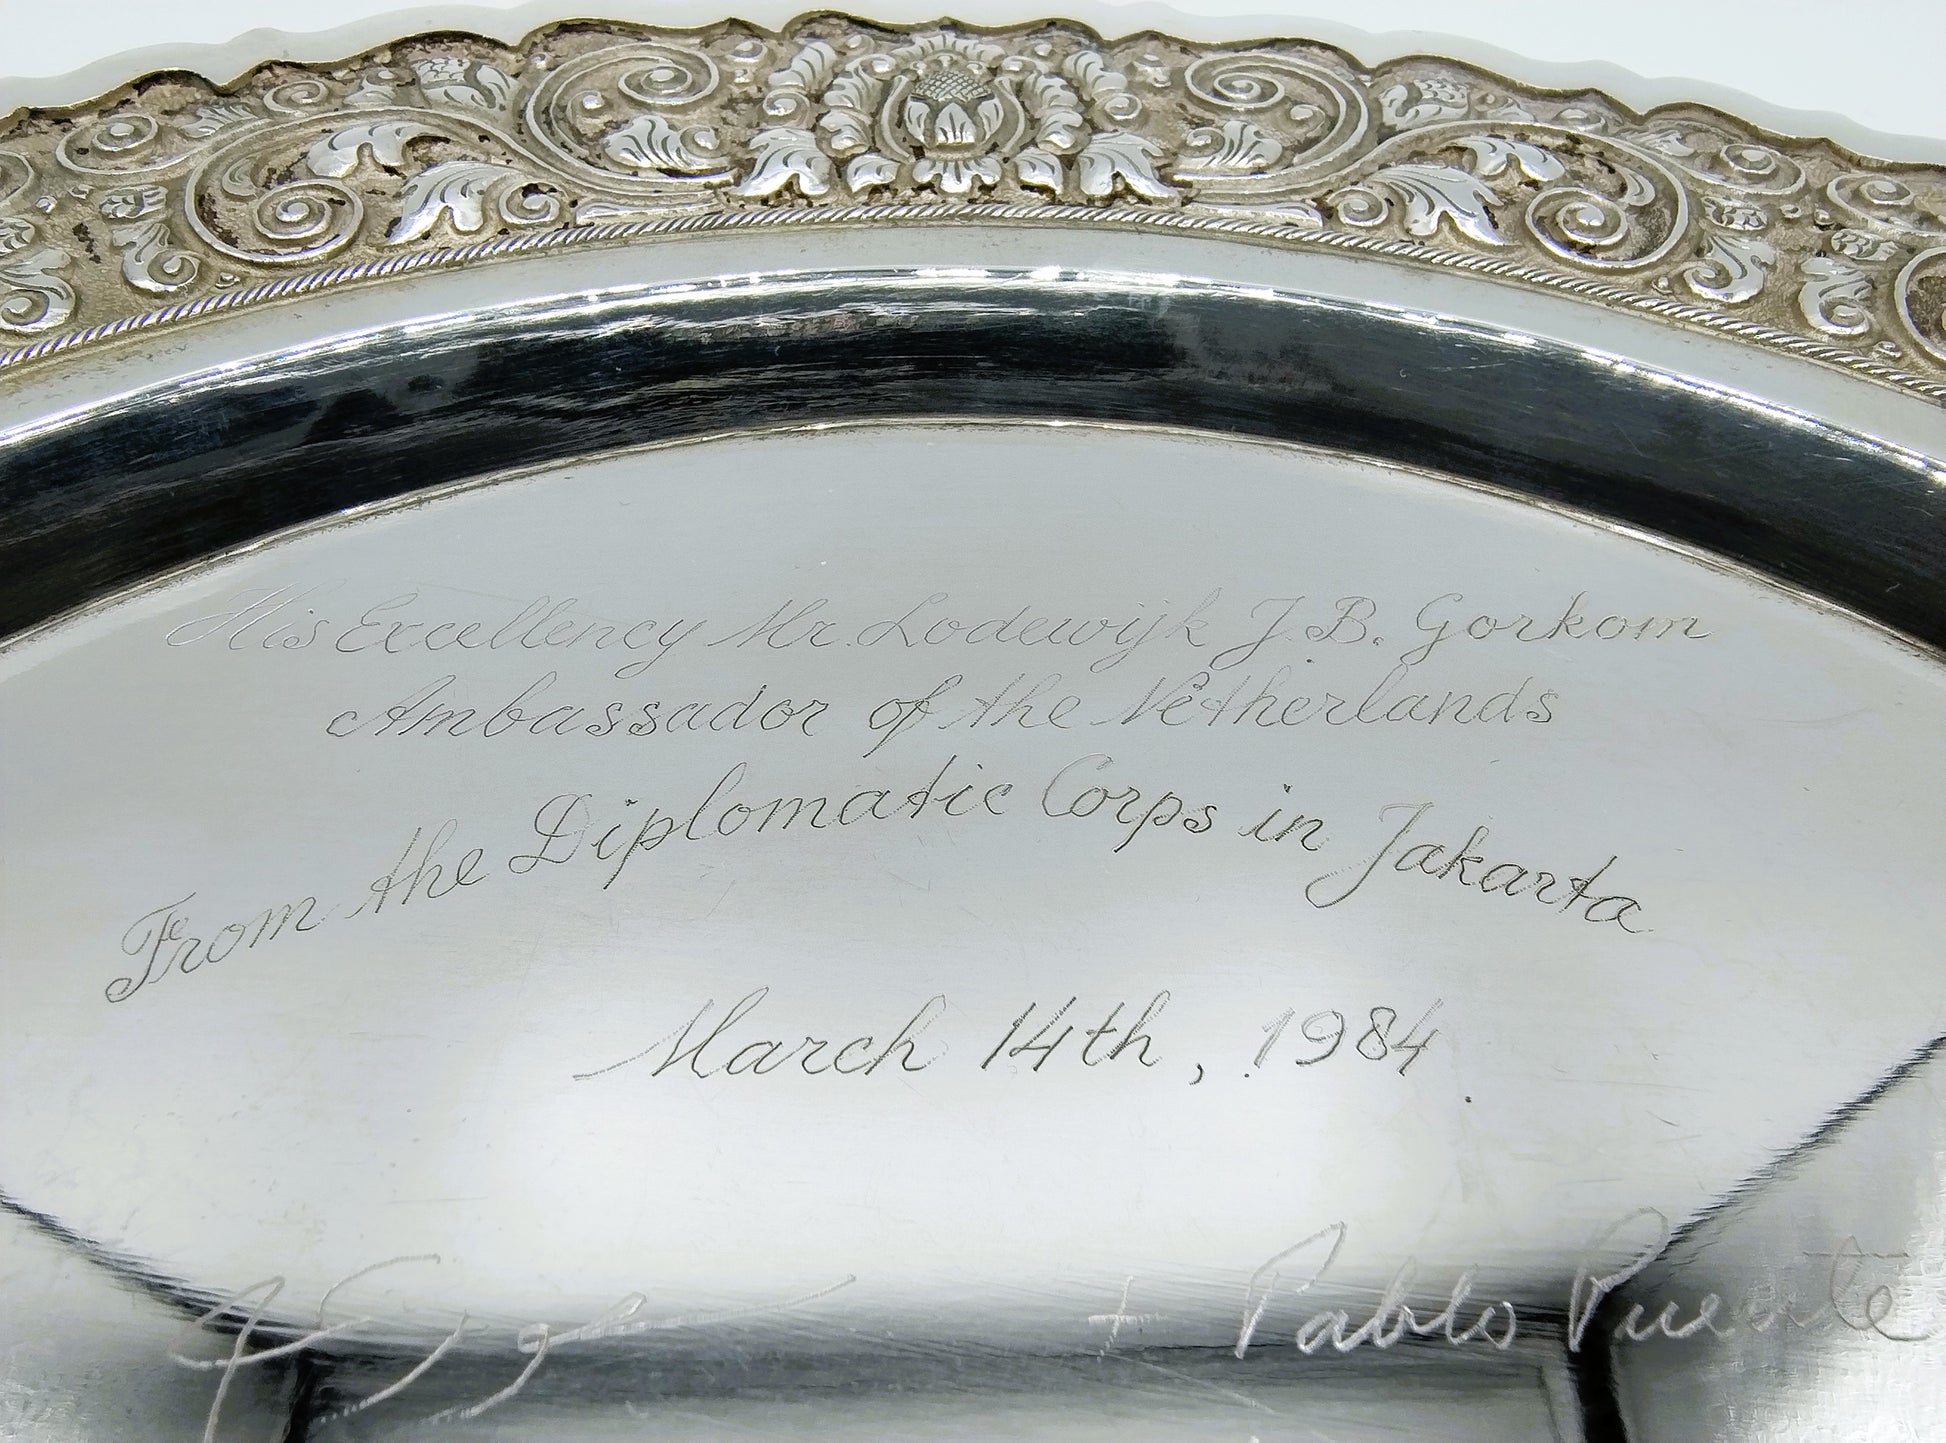 His Excellency Mr. Lodewijk J. B. Gorkom
Ambassador of the Netherlands
From the Diplomatic Corps in Jakarta
March 14th, 1984
+ Pablo Puente